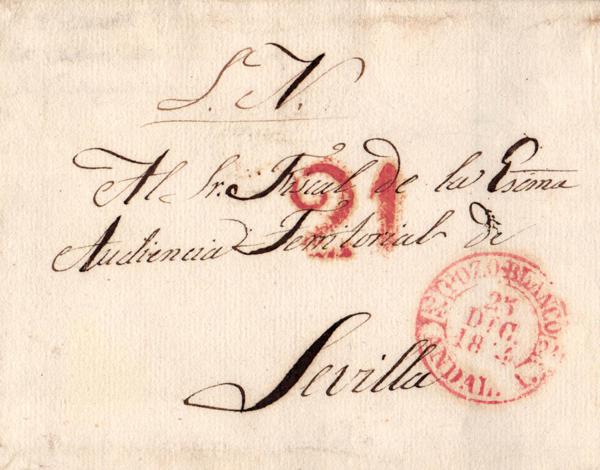 S. N.
Al Sr. Fiscal de la Esema
21
Audiencia Territorial de
Sevilla
POZO-BLANCO
25
DIC.
18
ANDAL.